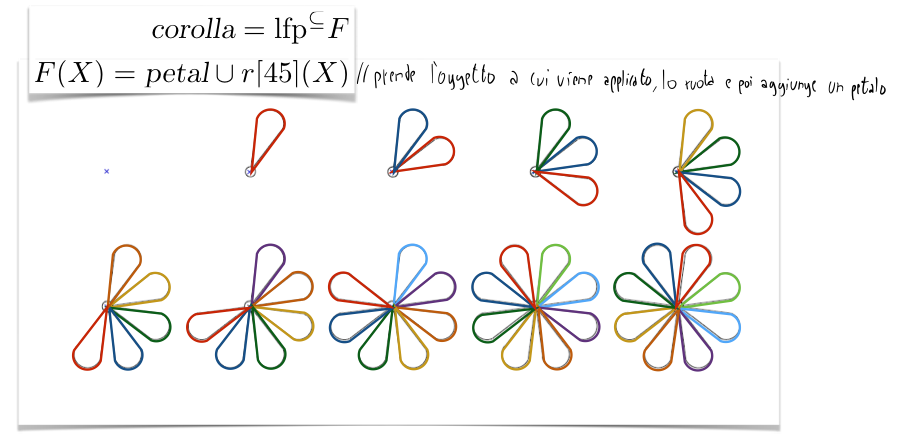 corolla = lfp⊆ F
F(X) = petal ∪ r[45](X) // prende l'oggetto a cui viene applicato, lo ruota e poi aggiunge un petalo